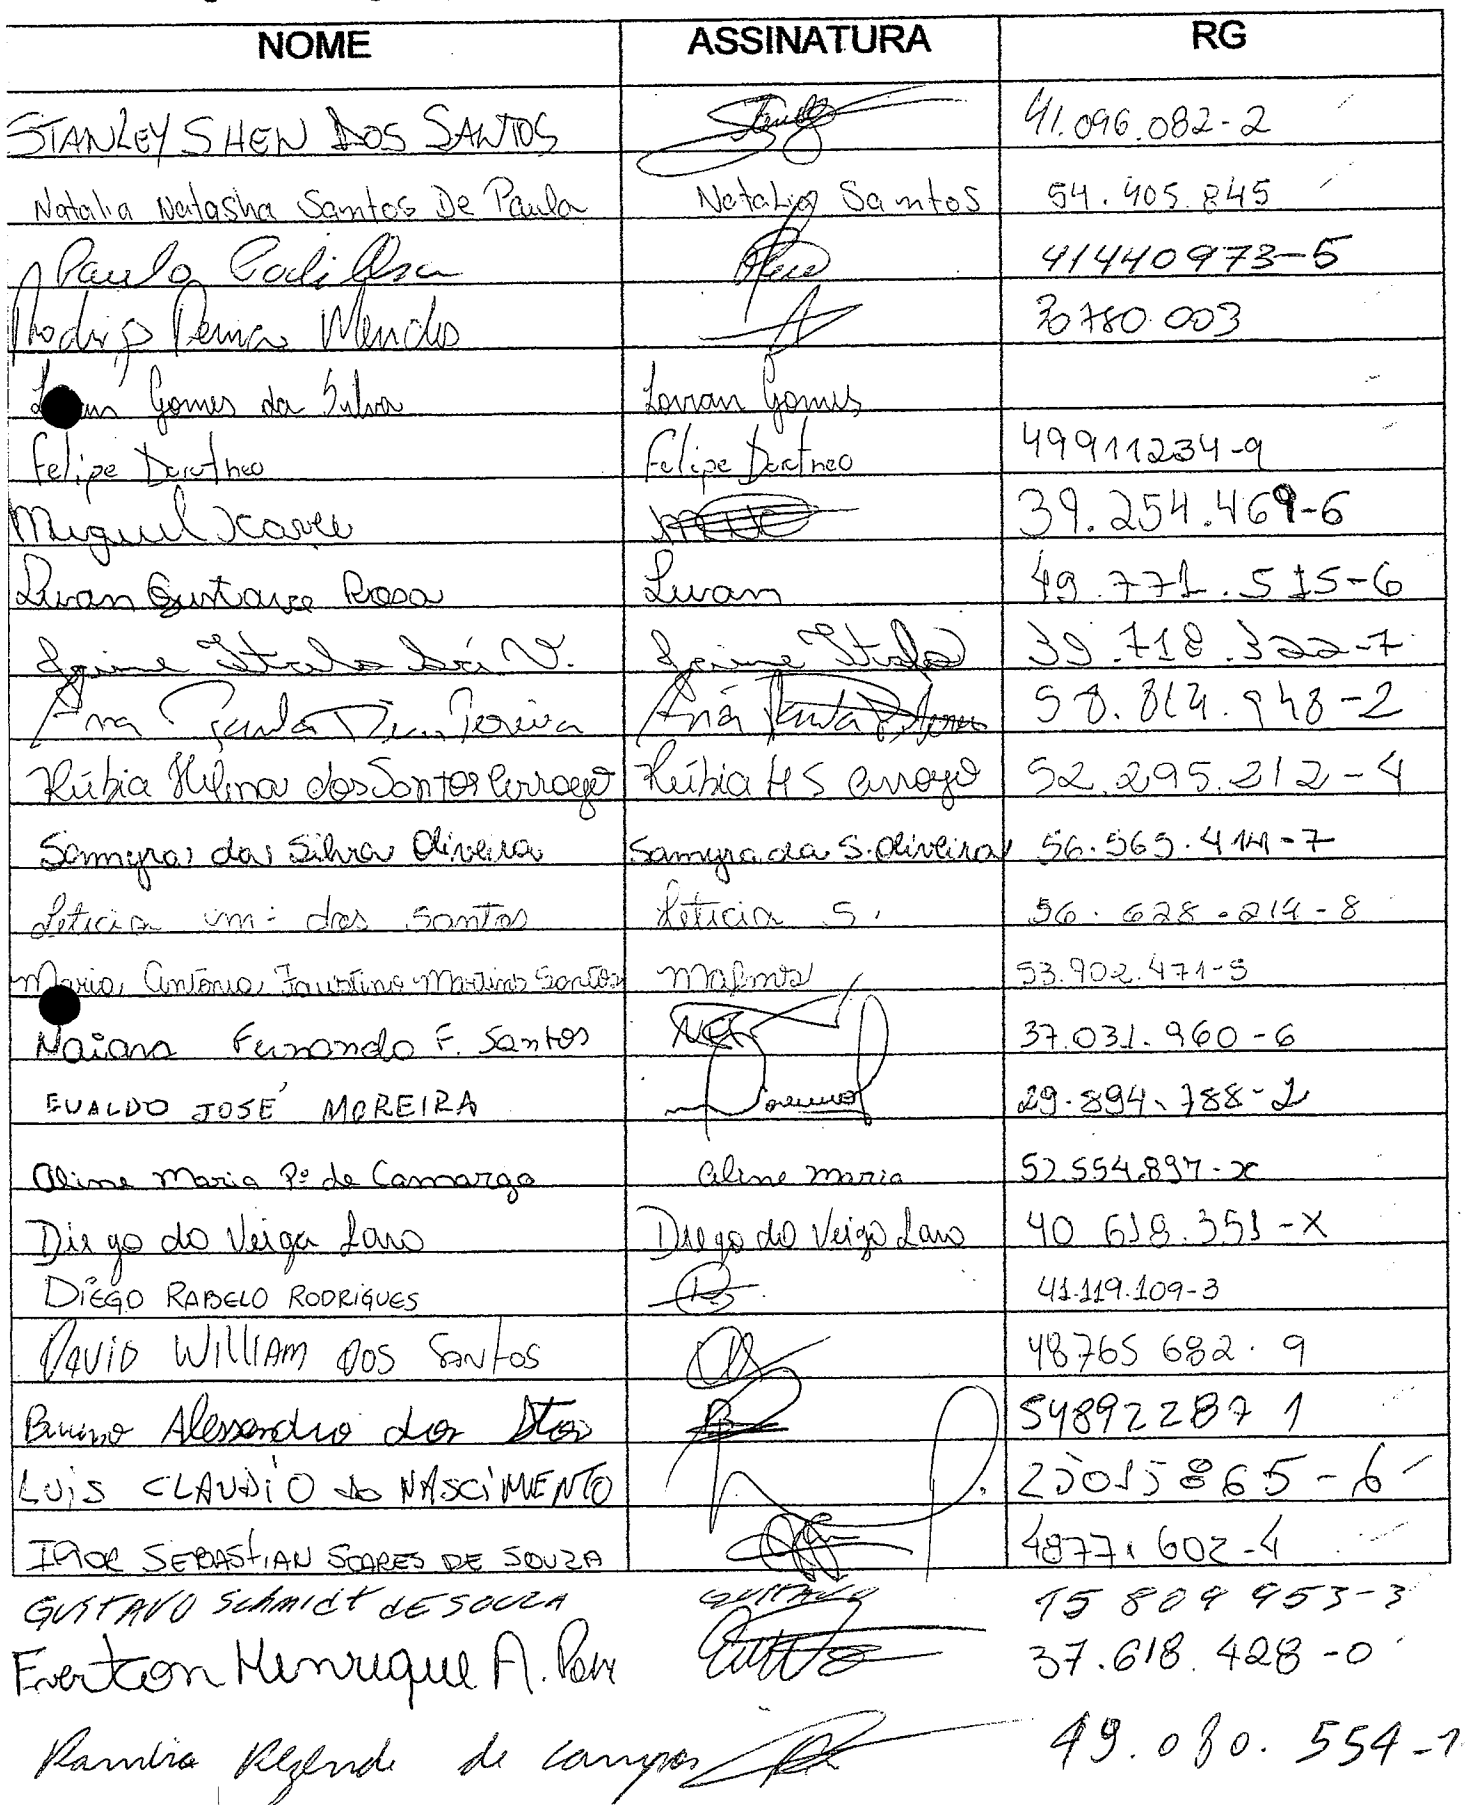 NOME ASSINATURA RG
STANLEY SHEN DOS SANTOS 41.096.082-2
Natalia Natasha Santos De Paula Natalia Santos 54.405.845
Paula 41440973-5
Rodrigo Mendes 30780.003
Gomes da Silva Lorran Gomes
Felipe Felipe 49911234-9
Miguel 39.254.469-6
Luan Gustavo Rosa Luan 49.771.515-6
Jaime Italo V. Jaime Italo 39.718.322-7
Ana Paula Pereira Ana Paula 58.814.948-2
Rúbia Helena dos Santos Arroyo Rúbia H S Arroyo 52.295.212-4
Samyra da Silva Oliveira Samyra da S. Oliveira 56.565.414-7
Leticia dos Santos Leticia S. 56.628.214-8
Maria Antônia Faustino Martins Santos 53.902.471-5
Naiara Fernanda F. Santos 37.031.960-6
EVALDO JOSÉ MOREIRA 29.894.788-2
Aline Maria Pº de Camargo Aline Maria 52.554.897-x
Diego do Veiga Lara Diego do Veiga Lara 40 618.351-X
DIEGO RABELO RODRIGUES 41.119.109-3
DAVID WILLIAM DOS SANTOS 48765 682.9
Bruno Alessandro dos Stos 54892287 1
LUIS CLAUDIO do NASCIMENTO 25015865-6
IGOR SEBASTIAN SOARES DE SOUZA 48771602-4
GUSTAVO Schmidt dE SOUZA GUSTAVO 15 809 953-3
Everton Henrique A. 37.618.428-0
Rezende de Campos 49.080.554-1